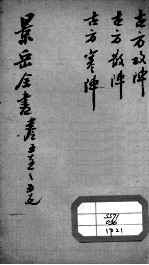 古方攻陣
古方散陣
古方寒陣
景岳全書
5571
1721